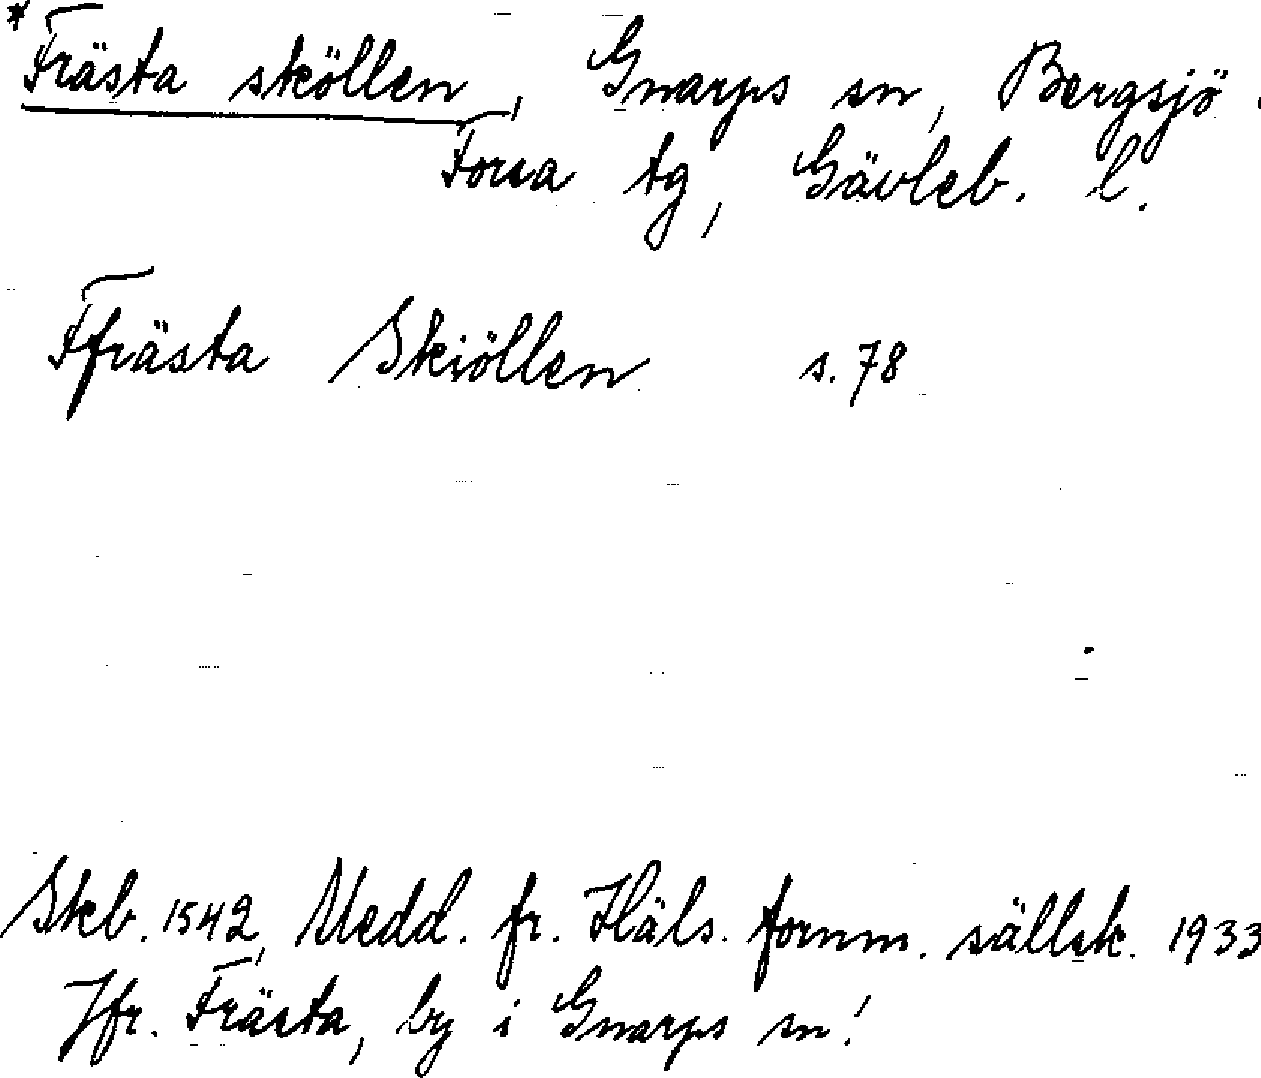 *Frästa sköllen, Gnarps sn, Bergsjö -
Forsa tg, Gävleb. l.
Ffrästa Skiöllen s. 78
Skb. 1542, Medd. fr. Häls. fornm. sällsk. 1933
Jfr. Frästa, by i Gnarps sn!